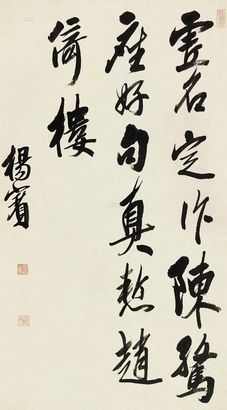 虚名定作陳驚
座好句真慙趙
倚樓
楊賓